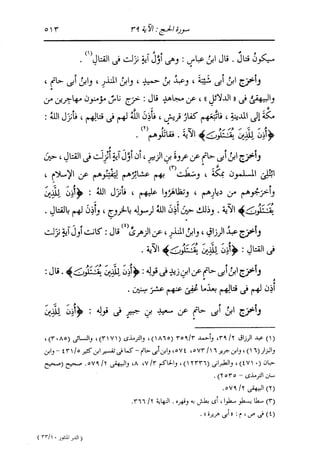 سورة الحج : الآية ٣٩
٥١٣
سيكونُ قتالٌ . قال ابنُ عباسٍ : وهى أوَّلُ آيةٍ نزَلت فى القتالِ(١) .
وأخرَج ابنُ أبى شَيْبَةَ ، وعبدُ بنُ حميدٍ ، وابنُ المنذرِ ، وابنُ أبى حاتمٍ ،
والبيهقىُّ فى « الدلائلِ » ، عن مجاهدٍ قال : خرَج ناسٌ مؤمنون مهاجرين من
مكةَ إلى المدينةِ ، فاتَّبَعهم كفارُ قريشٍ ، فأذِن اللهُ لهم فى قتالِهم ، فأنزَل اللهُ :
﴿ أُذِنَ لِلَّذِينَ يُقَٰتَلُونَ ﴾ الآية . فقاتَلوهم(٢) .
وأخرَج ابنُ أبى حاتمٍ عن عروةَ بنِ الزبيرِ ، أن أوَّلَ آيةٍ أُنزِلت فى القتالِ ، حين
ابتُلِىَ المسلمون بمكةَ ، وسطَت(٣) بهم عشائرُهم ليَفْتِنوهم عن الإسلامِ ،
وأخرَجوهم من ديارِهم ، وتظاهَروا عليهم ، فأنزَل اللهُ : ﴿ أُذِنَ لِلَّذِينَ
يُقَٰتَلُونَ ﴾ الآية . وذلك حينَ أذِن اللهُ لرسولِه بالخروجِ ، وأذِن لهم بالقتالِ .
وأخرَج عبدُ الرزاقِ ، وابنُ المنذرِ ، عن الزهرىِّ(٤) قال : كانت أولَ آيةٍ نزَلت
فى القتالِ : ﴿ أُذِنَ لِلَّذِينَ يُقَٰتَلُونَ ﴾ الآية .
وأخرَج ابنُ أبى حاتمٍ عن ابنِ زيدٍ فى قولِه : ﴿ أُذِنَ لِلَّذِينَ يُقَٰتَلُونَ ﴾ . قال :
أُذِن لهم فى قتالِهم بعدَما عُفِىَ عنهم عشرَ سنين .
وأخرَج ابنُ أبى حاتمٍ عن سعيدِ بنِ جبيرٍ فى قولِه : ﴿ أُذِنَ لِلَّذِينَ
(١) عبد الرزاق ٣٩/٢ ، وأحمد ٣٥٩/٣ (١٨٦٥) ، والترمذى (٣١٧١) ، والنسائى (٣٠٨٥) ،
والبزار (١٦) ، وابن جرير ٥٧٣/١٦ ، ٥٧٤ ، وابن أبى حاتم - كما فى تفسير ابن كثير ٤٣١/٥ - وابن
حبان (٤٧١٠) ، والطبرانى (١٢٣٣٦) ، والحاكم ٧/٣ ، ٨ ، والبيهقى ٥٧٩/٢ . صحيح (صحيح
سنن الترمذى - ٢٥٣٥) .
(٢) البيهقى ٥٧٩/٢ .
(٣) سطا يسطو سطوا ، أى بطش به وقهره . النهاية ٣٦٦/٢ .
(٤) فى ص ، م : « أبى هريرة » .
( الدر المنثور ٣٣/١٠ )